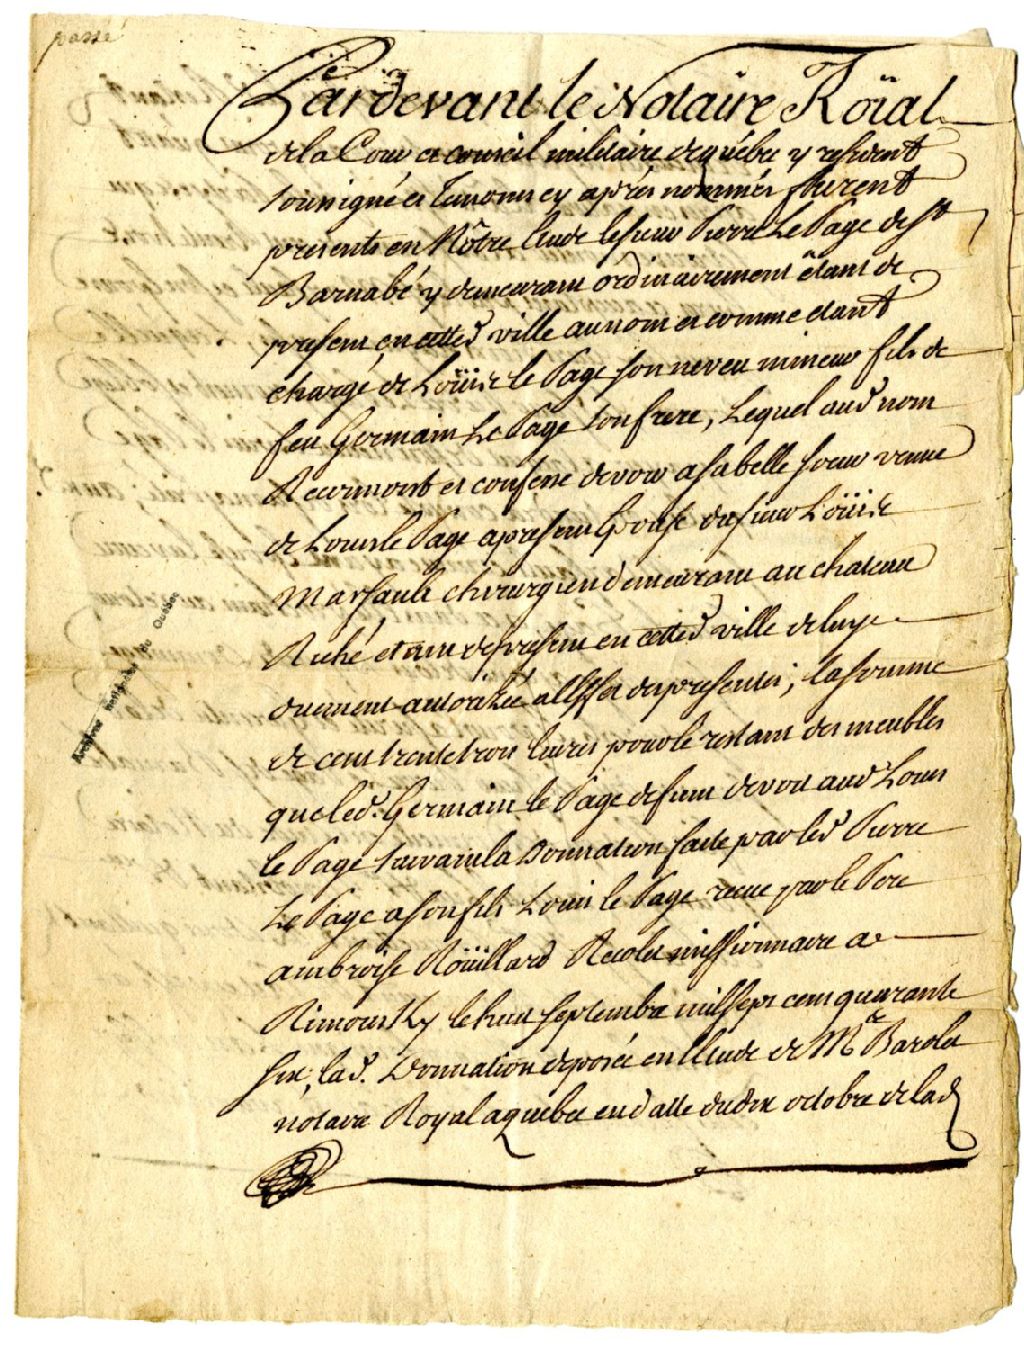 passé
Pardevant le Notaire Roïal
de la Cour et conseil militaire de quebec y resident
soussigné et temoins cy après nommés furent
présents en Nôtre Etude le sieur Pierre Le Page de St
Barnabé y demeurant ordinairement êtant de
present en cette d. ville au nom et comme etant
chargé de Loüis le Page son neveu mineur fils de
feu Germain Le Page son frere, Lequel aud nom
Reconnoist et confesse devoir a Isabelle soeur veuve
de Louis le Page a present Epouse du sieur Loüis
Marsault chirurgien demeurant au chateau
Riché etant de present en cette d ville de luy
duement autorisée a l'Effet des presentes; la somme
de cent trente trois livres pour le restant des meubles
que led. Germain le Page defunt devoit aud Louis
le Page suivant la Donnation faite par led Pierre
Le Page a son fils Louis le Page receue par le Pere
ambroise Roüillard Recolet missionnaire a
Rimousky le huit septembre mil sept cent quarante
six, lad. Donnation deposée en l'Etude de Mtre Barolet
notaire Royal a quebec en datte du dix octobre de lad
Archives nationales du Québec